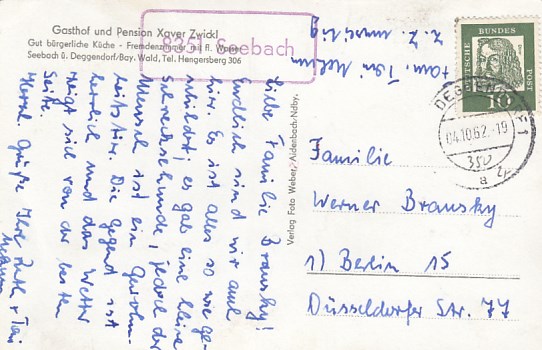 Gasthof und Pension Xaver Zwickl
Gut bürgerliche Küche - Fremdenzimmer mit fl. Wasser
Seebach ü. Deggendorf/Bay. Wald, Tel. Hengersberg 306
8351 Seebach
Liebe Familie Bransky!
Endlich sind wir auch
hier. Es ist alles so wie ge-
schildert; es gab eine kleine
Schrecksekunde, jedoch der
Mensch ist ein Gewohn-
heitstier. Die Gegend ist
herrlich und das Wetter
zeigt sich von der besten
Seite
Herzl. Grüße Ihre Ruth +
Verlag Foto Weber, Aidenbach/Ndby.
Fam.
z. Z.
DEUTSCHE BUNDESPOST
10
DEGGENDORF 1
04.10.62.-19
350
a
Familie
Werner Bransky
1) Berlin 15
Düsseldorfer Str. 77